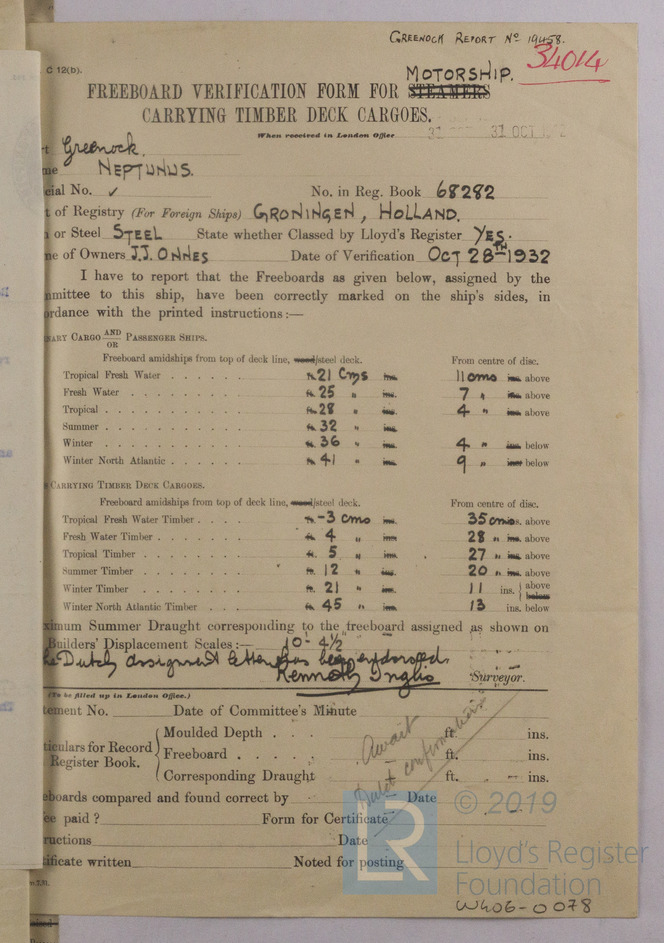 GREENOCK REPORT Nº 19458.
34014
C 12(b).
MOTORSHIP.
FREEBOARD VERIFICATION FORM FOR STEAMERS
CARRYING TIMBER DECK CARGOES.
When received in London Office 31 OCT 31 OCT 1932
t Greenock.
me NEPTUNUS.
cial No. ✓ No. in Reg. Book 68282
t of Registry (For Foreign Ships) GRONINGEN, HOLLAND.
n or Steel STEEL State whether Classed by Lloyd's Register YES.
ne of Owners J.J. ONNES Date of Verification OCT 28TH 1932
I have to report that the Freeboards as given below, assigned by the
mmittee to this ship, have been correctly marked on the ship's sides, in
ordance with the printed instructions:—
NARY CARGO AND/OR PASSENGER SHIPS.
Freeboard amidships from top of deck line, wood/steel deck. From centre of disc.
Tropical Fresh Water ft. 21 Cms ins. 11 cms ins. above
Fresh Water ft. 25 " ins. 7 " ins. above
Tropical ft. 28 " ins. 4 " ins. above
Summer ft. 32 " ins.
Winter ft. 36 " ins. 4 " ins. below
Winter North Atlantic ft. 41 " ins. 9 " ins. below
CARRYING TIMBER DECK CARGOES.
Freeboard amidships from top of deck line, wood/steel deck. From centre of disc.
Tropical Fresh Water Timber ft. -3 cms ins. 35 cms ins. above
Fresh Water Timber ft. 4 " ins. 28 " ins. above
Tropical Timber ft. 5 " ins. 27 " ins. above
Summer Timber ft. 12 " ins. 20 " ins. above
Winter Timber ft. 21 " ins. 11 ins. above below
Winter North Atlantic Timber ft. 45 " ins. 13 ins. below
ximum Summer Draught corresponding to the freeboard assigned as shown on
Builders' Displacement Scales:— 10'- 4½"
he Dutch assignment letter has been endorsed.
Kenneth Inglis Surveyor.
(To be filled up in London Office.)
tement No. Date of Committee's Minute
ticulars for Record
Register Book.
Moulded Depth ft. ins.
Freeboard ft. ins.
Corresponding Draught ft. ins.
Await
Dutch confirmation
eboards compared and found correct by Date
ee paid? Form for Certificate
ructions Date
tificate written Noted for posting
© 2019
LR
Lloyd's Register
Foundation
W406-0078